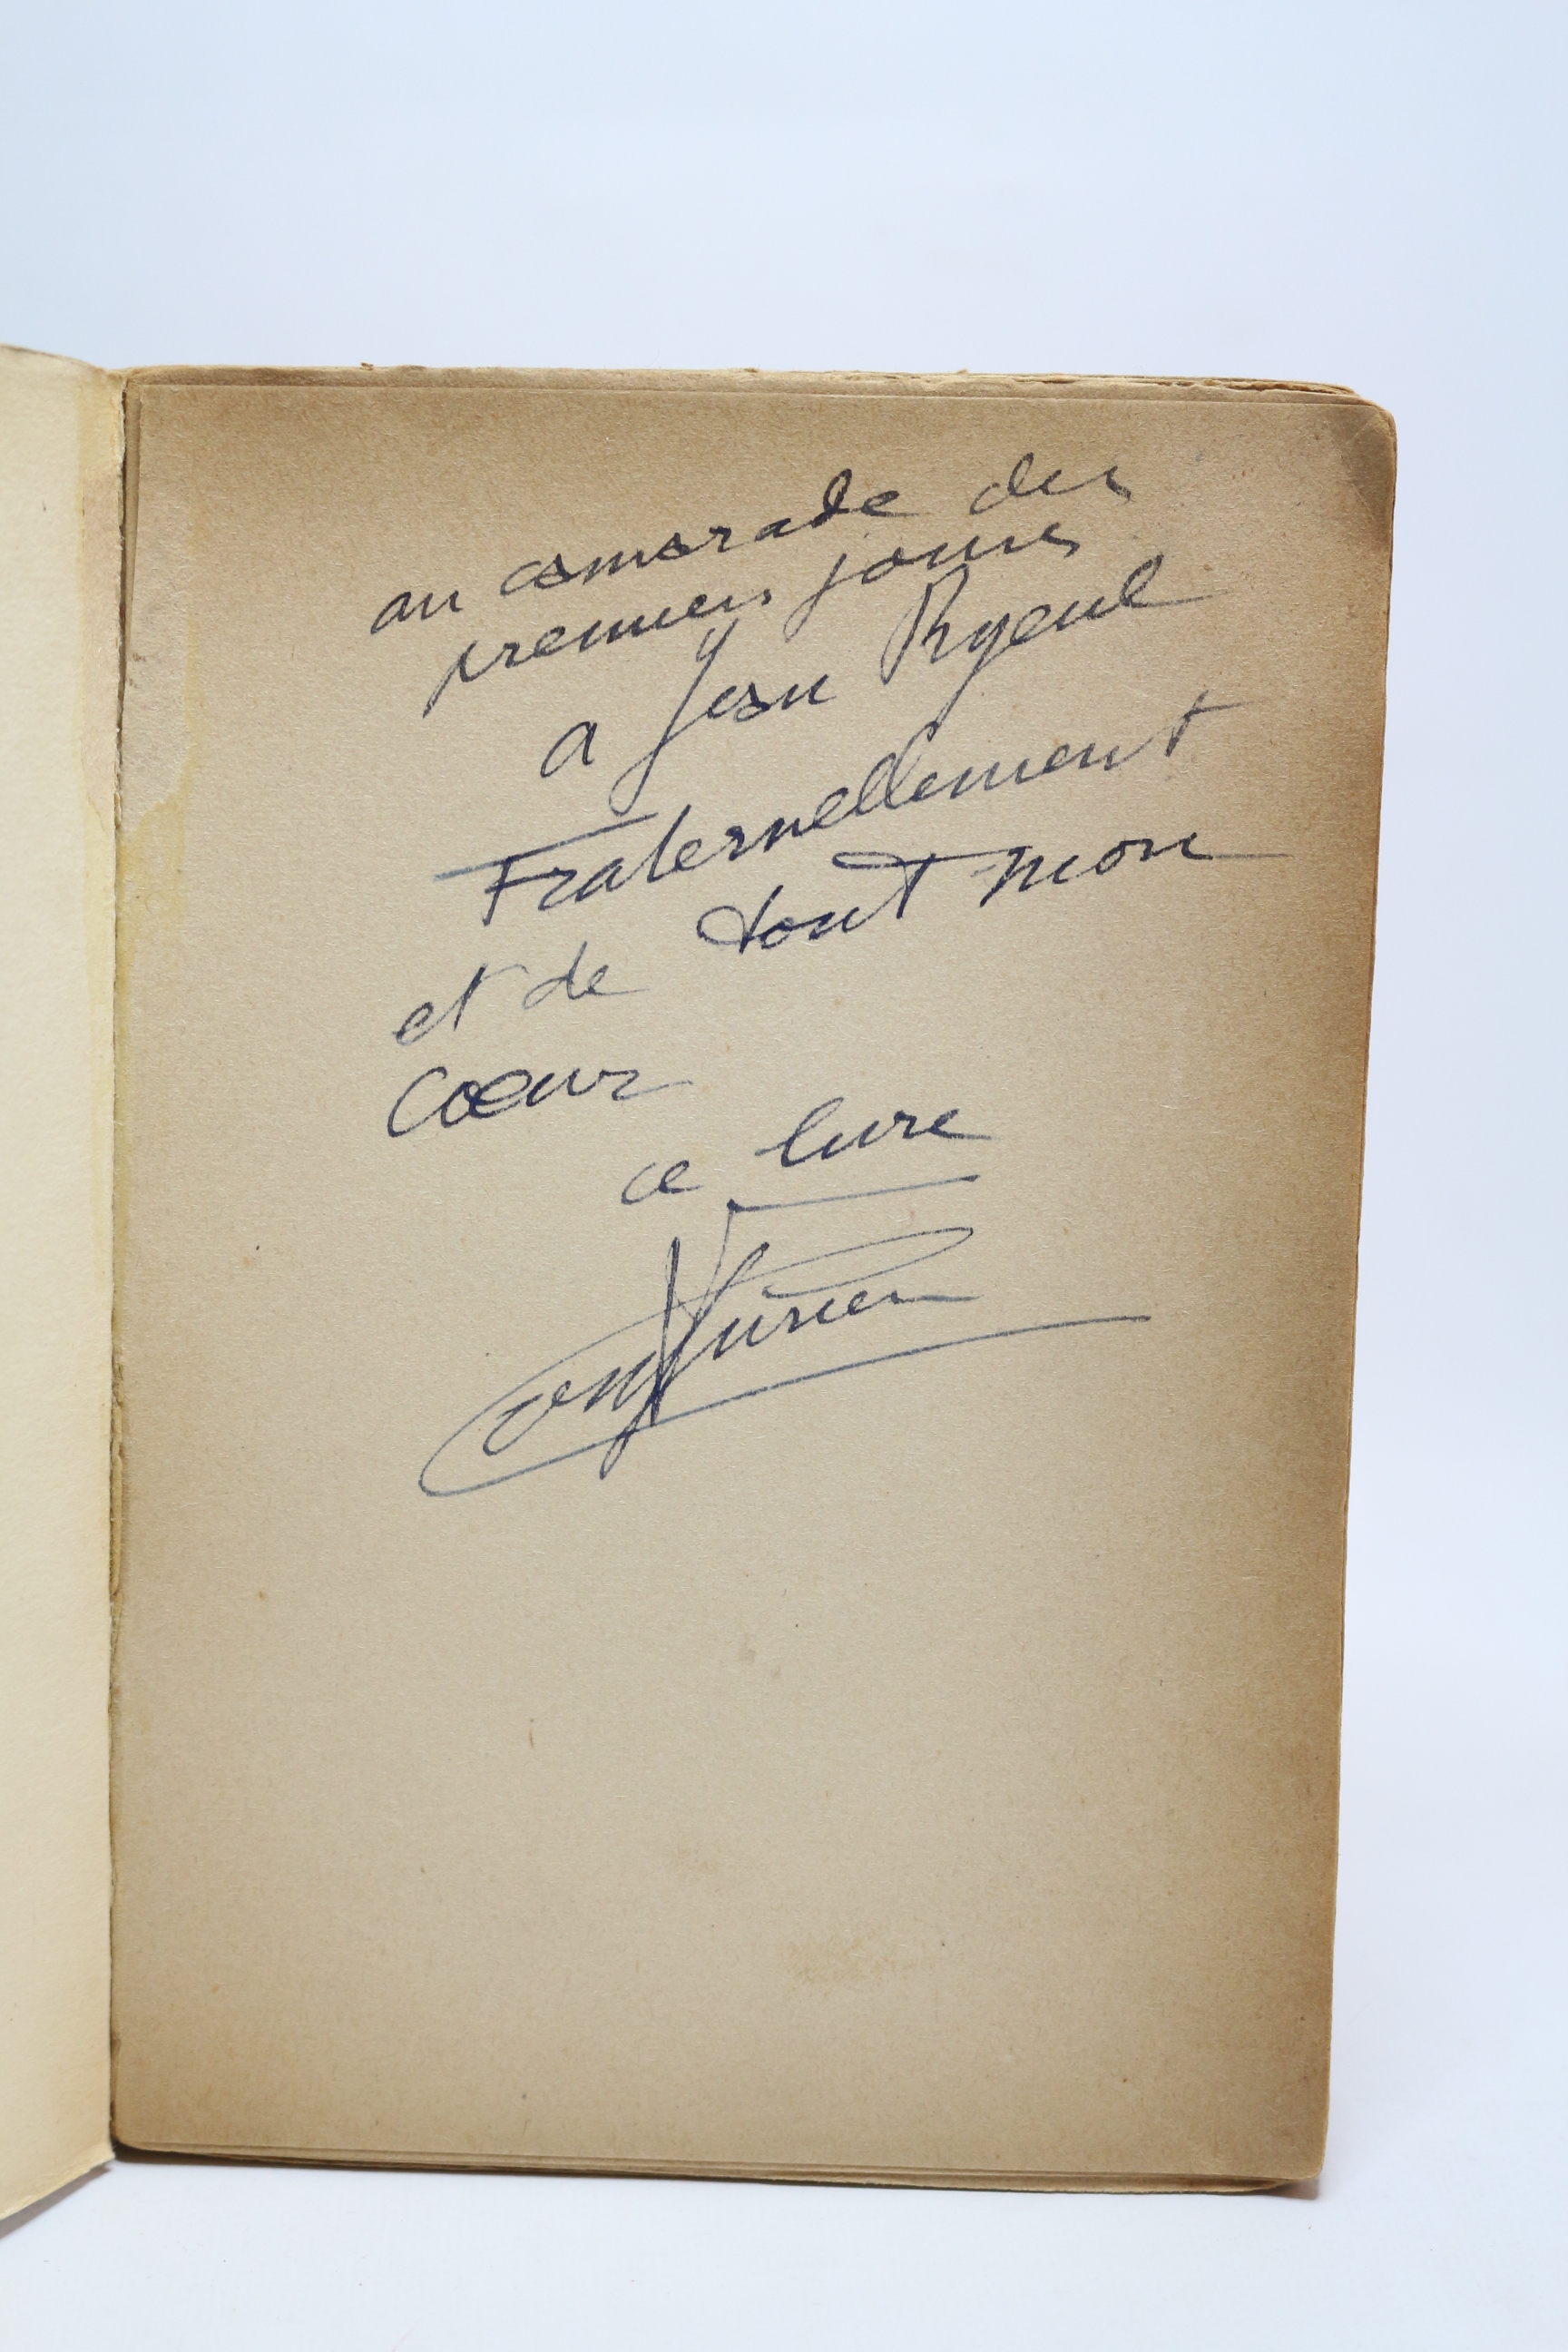 au camarade des
premiers jours
a Jean Rigeul
Fraternellement
et de tout mon
cœur
ce livre